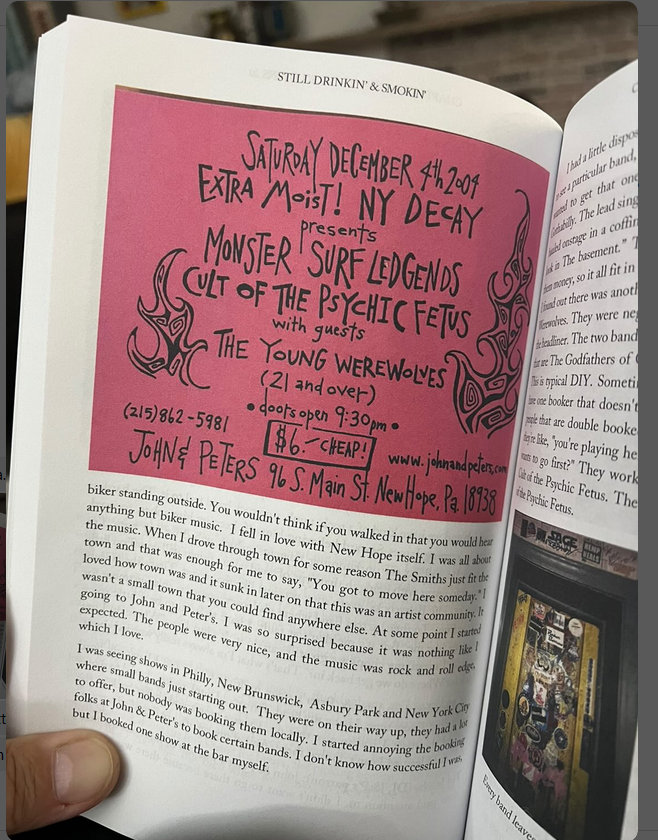 STILL DRINKIN' & SMOKIN'
SATURDAY DECEMBER 4th 2004
EXTRA MOIST! NY DECAY
presents
MONSTER SURF LEDGENDS
CULT OF THE PSYCHIC FETUS
with guests
THE YOUNG WEREWOLVES
(21 and over)
• doors open 9:30pm •
(215) 862-5981
$6.— CHEAP!
www.johnandpeters.com
JOHN & PETERS 96 S. Main St New Hope, Pa. 18938
biker standing outside. You wouldn't think if you walked in that you would hear
anything but biker music. I fell in love with New Hope itself. I was all about
the music. When I drove through town for some reason The Smiths just fit the
town and that was enough for me to say, "You got to move here someday." I
loved how town was and it sunk in later on that this was an artist community. It
wasn't a small town that you could find anywhere else. At some point I started
going to John and Peter's. I was so surprised because it was nothing like I
expected. The people were very nice, and the music was rock and roll edge,
which I love.
I was seeing shows in Philly, New Brunswick, Asbury Park and New York City
where small bands just starting out. They were on their way up, they had a lot
to offer, but nobody was booking them locally. I started annoying the booking
folks at John & Peter's to book certain bands. I don't know how successful I was,
but I booked one show at the bar myself.
I had a little
a particular band,
to get that one
The lead
onstage in a coffin
in The basement."
money, so it all fit in
found out there was
Werewolves. They were
the headliner. The two
are The Godfathers of
This is typical DIY.
one booker that doesn't
people that are double
they're like, "you're playing
to go first?" They work
Cult of the Psychic Fetus. The
of the Psychic Fetus.
Every band leaves